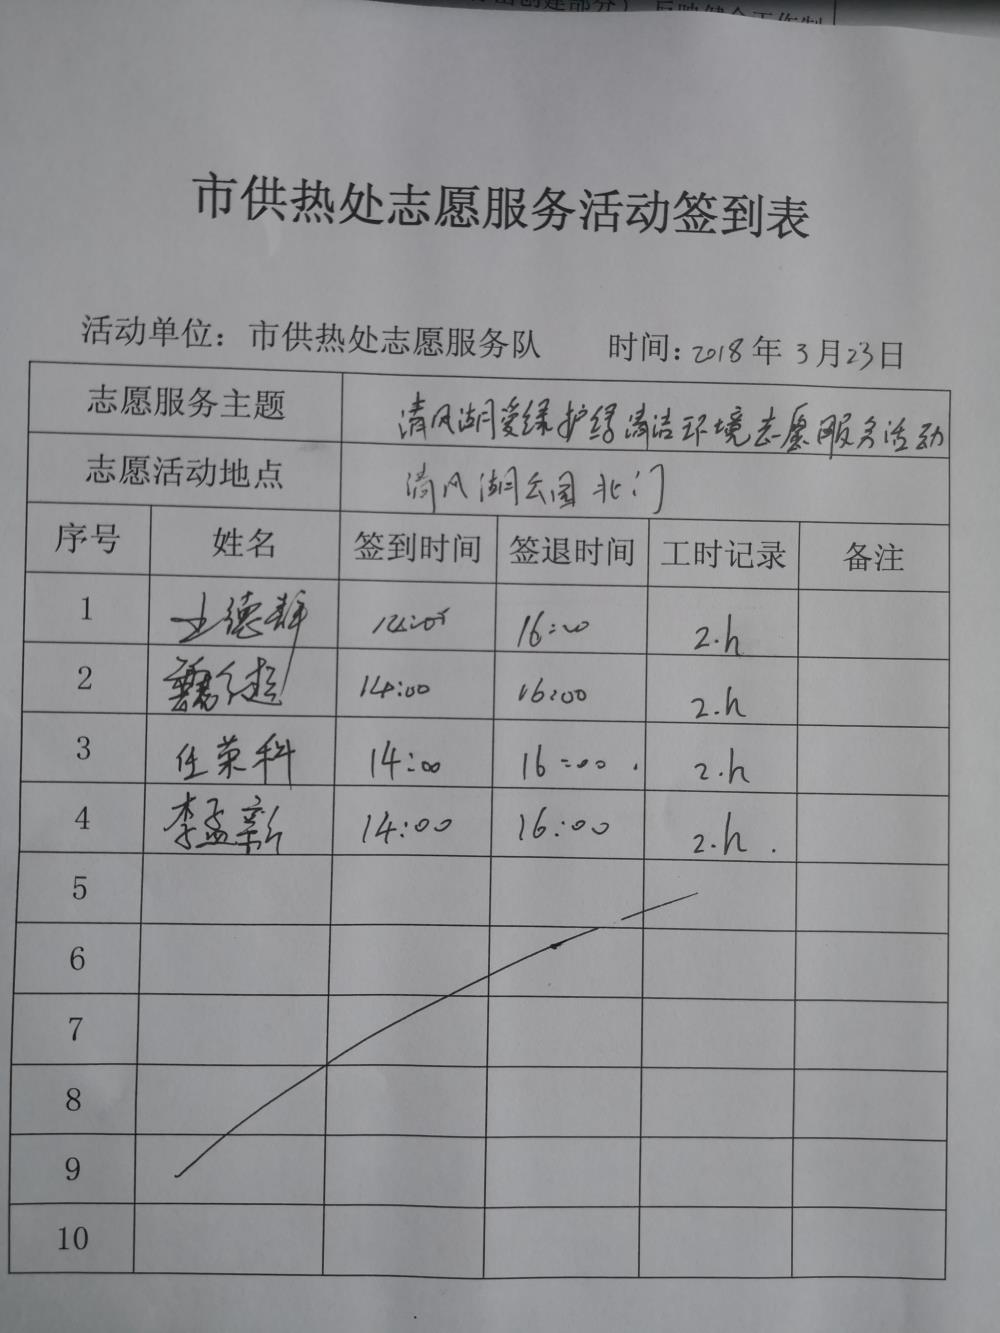 市供热处志愿服务活动签到表
活动单位：市供热处志愿服务队 时间：2018年3月23日
志愿服务主题 清风湖爱绿护绿清洁环境志愿服务活动
志愿活动地点 清风湖公园北门
序号 姓名 签到时间 签退时间 工时记录 备注
1 王德群 14:00 16:00 2.h
2 14:00 16:00 2.h
3 任荣科 14:00 16:00. 2.h
4 李孟新 14:00 16:00 2.h.
5
6
7
8
9
10